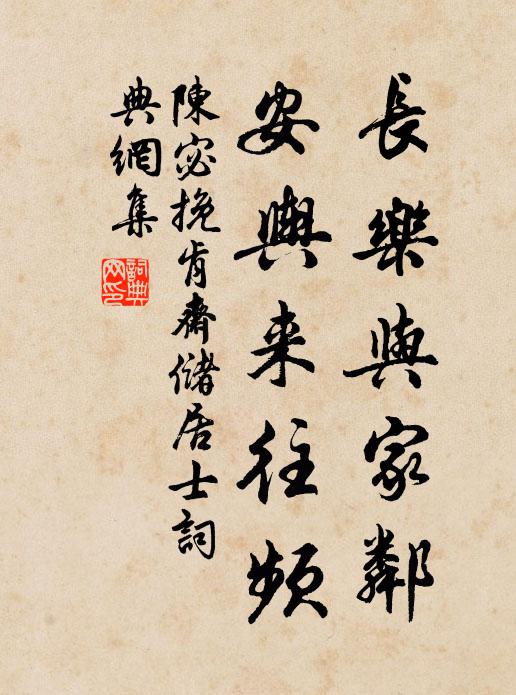 長樂與家鄰
安輿来往頻
陳宓挽肯齋儲居士詞
典網集
詞典
网印